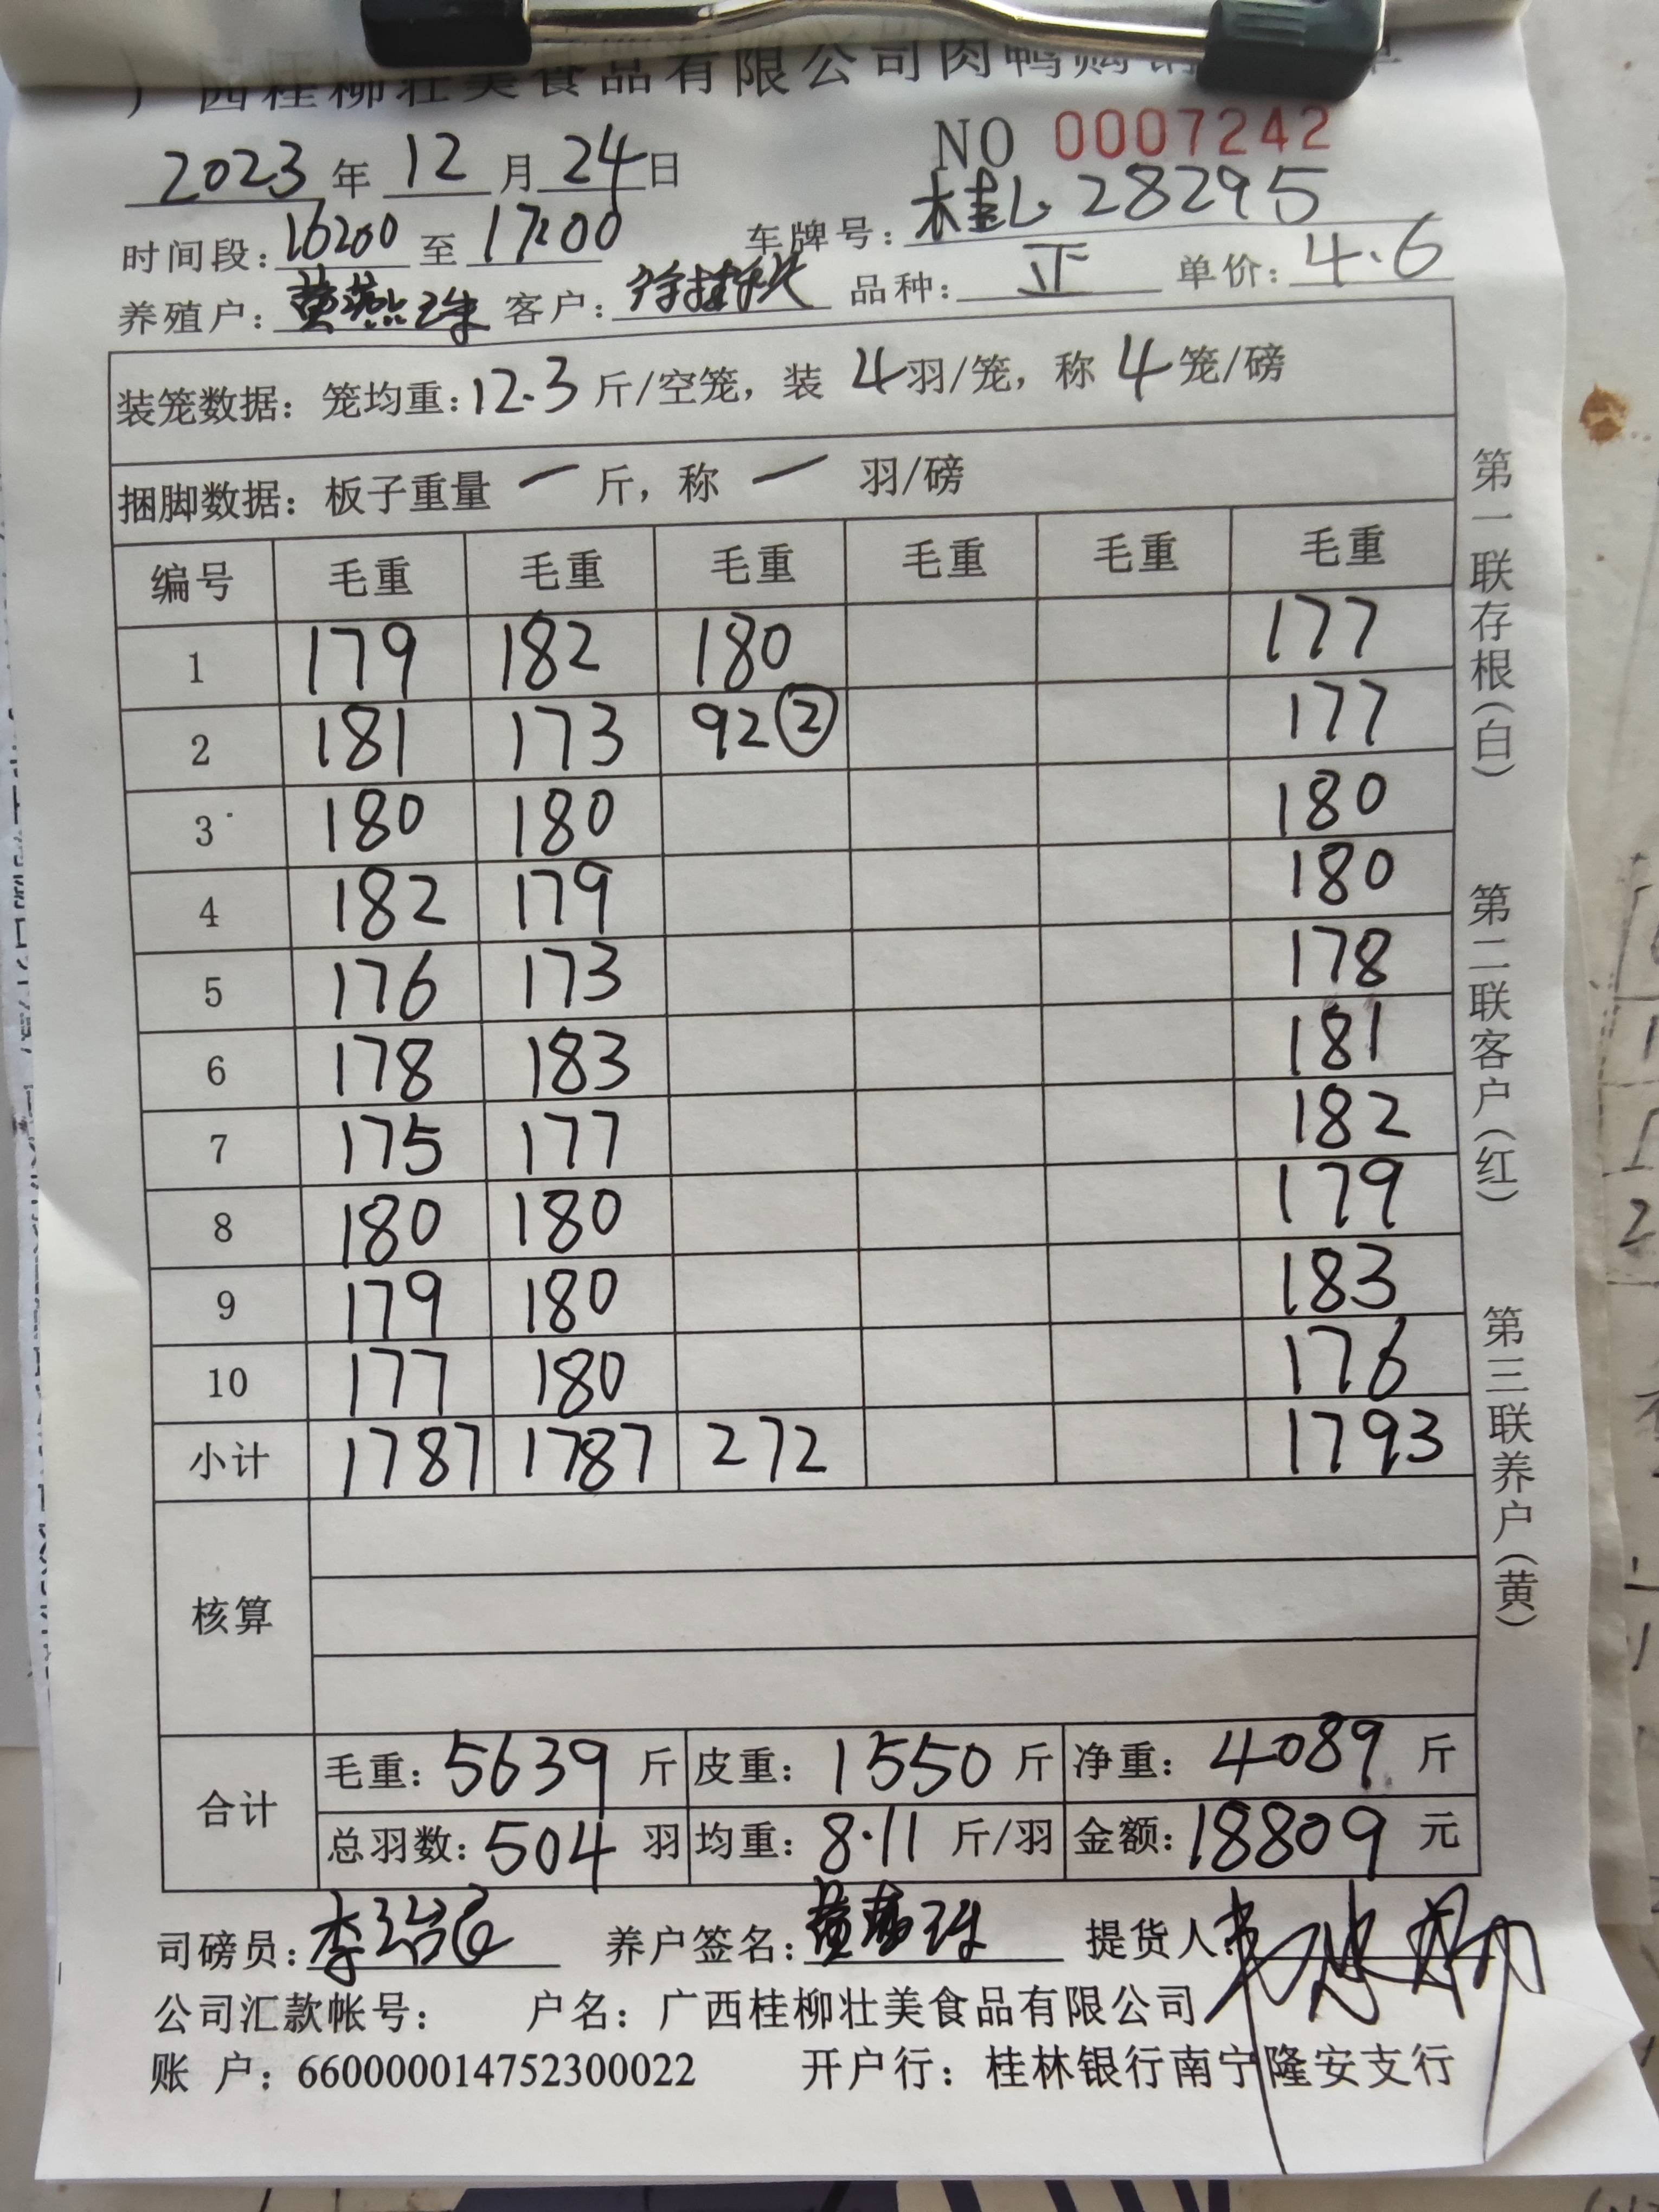 广西桂柳壮美食品有限公司肉鸭购销
NO 0007242
2023年12月24日
时间段:16:00至17:00 车牌号:桂L28295
养殖户:黄燕珠 客户:徐桂秋 品种:正 单价:4.6
装笼数据:笼均重:12.3斤/空笼,装4羽/笼,称4笼/磅
捆脚数据:板子重量一斤,称一羽/磅
编号 毛重 毛重 毛重 毛重 毛重 毛重
1 179 182 180 177
2 181 173 92② 177
3 180 180 180
4 182 179 180
5 176 173 178
6 178 183 181
7 175 177 182
8 180 180 179
9 179 180 183
10 177 180 176
小计 1787 1787 272 1793
核算
合计 毛重:5639斤 皮重:1550斤 净重:4089斤
总羽数:504羽 均重:8.11斤/羽 金额:18809元
司磅员: 养户签名:黄燕珠 提货人:
公司汇款帐号: 户名:广西桂柳壮美食品有限公司
账 户:660000014752300022 开户行:桂林银行南宁隆安支行
第一联存根(白) 第二联客户(红) 第三联养户(黄)